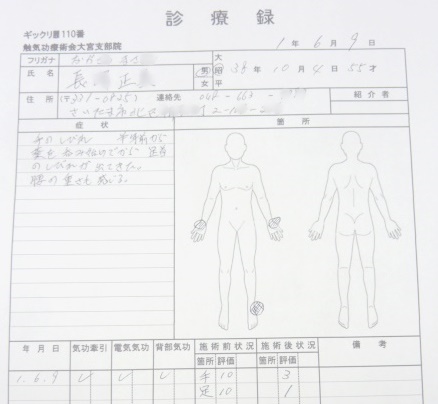 診療録
ギックリ腰110番
触気功療術会大宮支部院
1年 6月 9日
フリガナ
氏名 長 正 男 女 大 昭 平 38年 10月 4日 55才
住所 (〒331-0825) 連絡先 048-663- 紹介者
さいたま市 2-
症状 箇所
手のしびれ 半年前から
薬を 足首
のしびれが出てきた。
腰の重さも感じる。
年月日 気功牽引 電気気功 背部気功 施術前状況 施術後状況 備考
箇所 評価 箇所 評価
1.6.9 ✓ ✓ ✓ 手 10 3
足 10 1